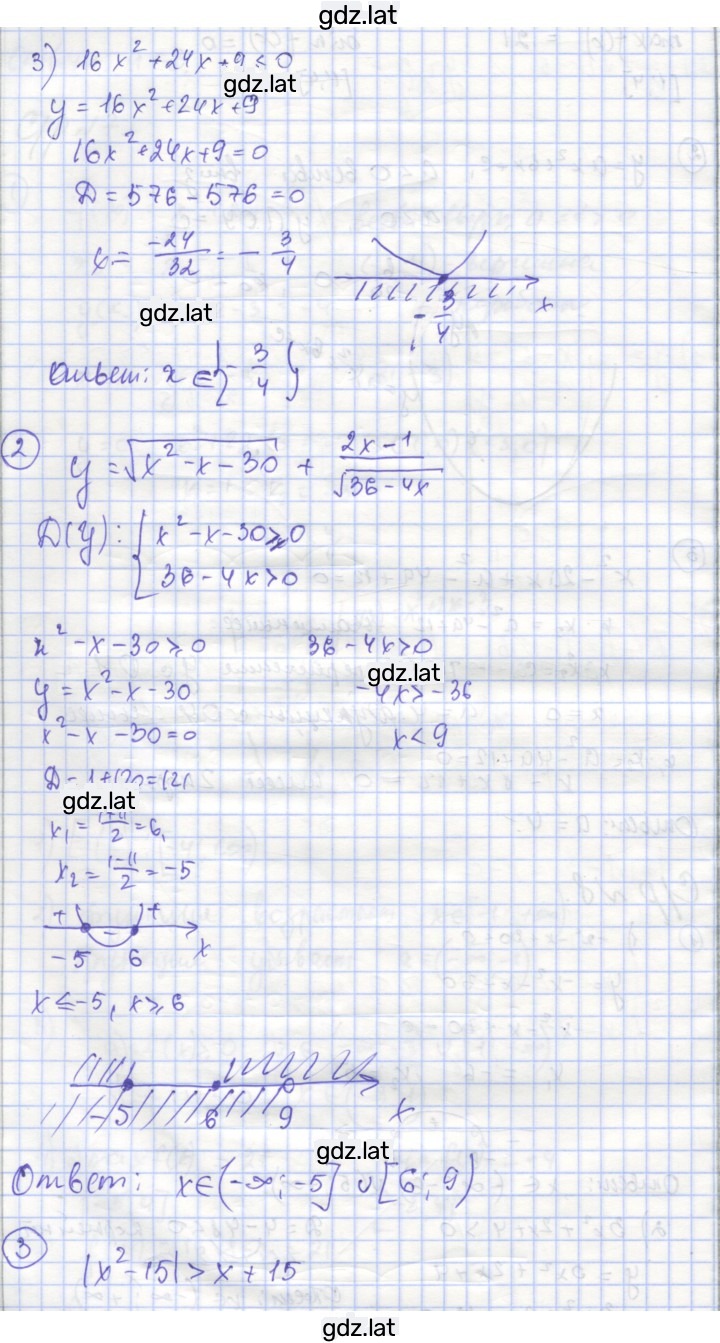 gdz.lat
3) 16x² + 24x + 9 ≤ 0
gdz.lat
y = 16x² + 24x + 9
16x² + 24x + 9 = 0
D = 576 - 576 = 0
x = -24/32 = - 3/4
gdz.lat
x
- 3/4
Ответ: x ∈ {- 3/4}
2
y = √(x² - x - 30) + (2x - 1)/√(36 - 4x)
D(y): { x² - x - 30 ≥ 0
36 - 4x > 0
x² - x - 30 ≥ 0 36 - 4x > 0
gdz.lat
y = x² - x - 30 -4x > -36
x² - x - 30 = 0 x < 9
D = 1 + 120 = 121
gdz.lat
x₁ = (1+11)/2 = 6,
x₂ = (1-11)/2 = -5
+ - +
-5 6 x
x ≤ -5, x ≥ 6
-5 6 9 x
gdz.lat
Ответ: x ∈ (-∞; -5] ∪ [6; 9)
3
|x² - 15| > x + 15
gdz.lat